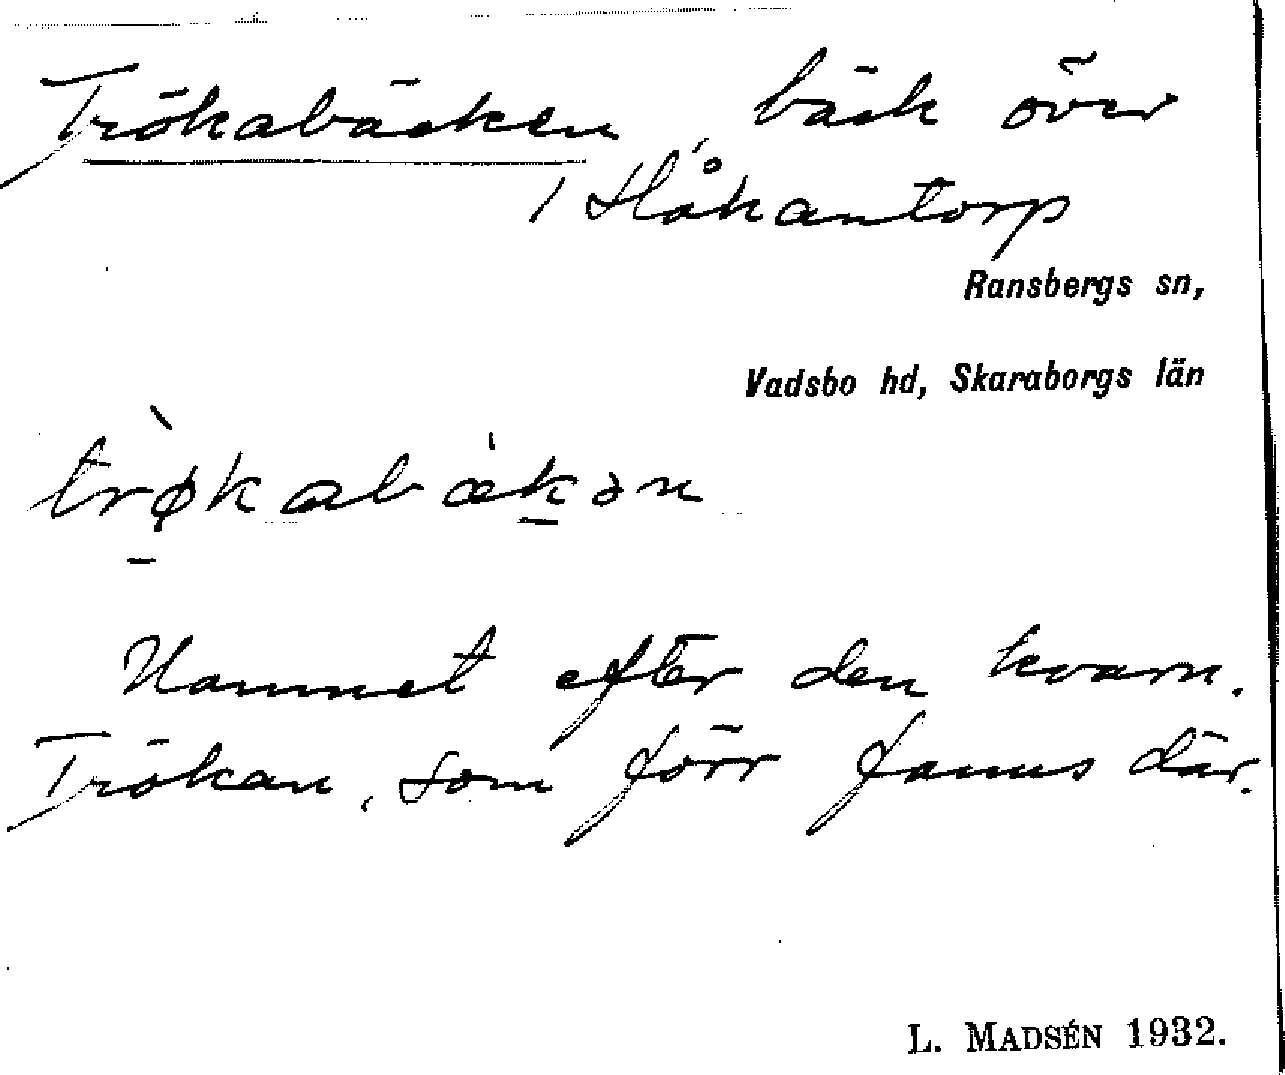 Trökabäcken, bäck över
1 Håkantorp
Ransbergs sn,
Vadsbo hd, Skaraborgs län
trø̀kabæ̍kən
Namnet efter den kvarn.
Trökan, som förr fanns där.
L. MADSÉN 1932.